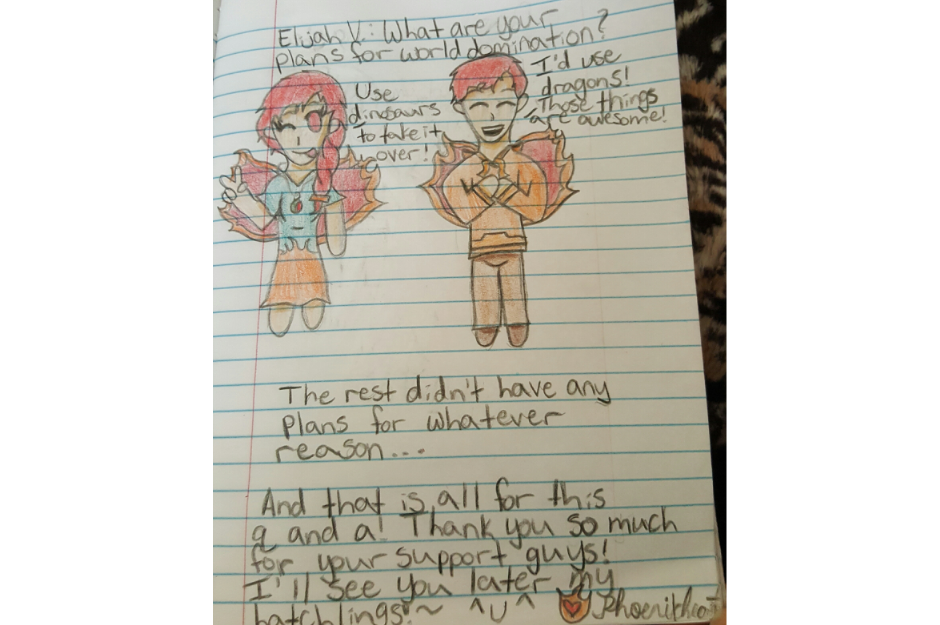 Elijah V.: What are your
plans for world domination?
Use
dinosaurs
to take it
over!
I'd use
dragons!
Those things
are awesome!
The rest didn't have any
plans for whatever
reason...
And that is all for this
q and a! Thank you so much
for your support guys!
I'll see you later my
hatchlings!~ ^U^